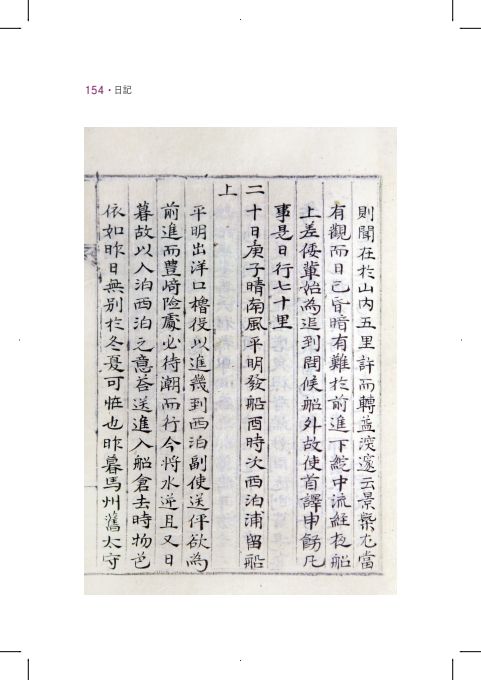 154 · 日記
則聞在於山內五里許而轉益深邃云景槩尤當
有觀而日已昏暗有難於前進下碇中流経夜船
上差倭輩始為追到問候船外故使首譯申飭凡
事是日行七十里
二十日庚子晴南風平明發船酉時次西泊浦留船
上
平明出洋口櫓役以進幾到西泊副使送伻欲為
前進而豊崎險處必待潮而行今將水逆且又日
暮故以入泊西泊之意答送進入船倉去時物色
依如昨日無別於冬夏可恠也昨暮馬州舊太守